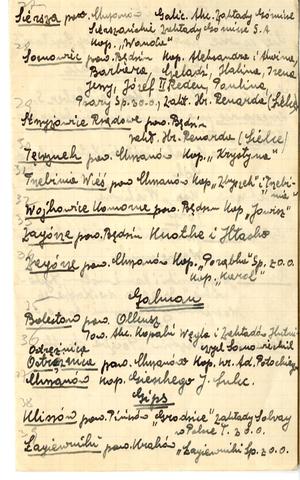 Siersza pow. Chrzanów Galic. Akc. Zakłady Górnicze
Sierszańskie Zakłady Górnicze S.A
Kop. „Wanda”
Sosnowiec pow. Będzin Kop. Aleksandra i Alwina,
Barbara, Czeladź, Halina, Irena
Jerzy, Józef II Reden, Paulina,
Psary Sp. z o.o, Zakł. Hr. Renarda (Sielce)
Strzyżowice Rządowe pow. Będzin
Zakł. Hr. Renarda (Sielce)
Tęczynek pow. Chrzanów Kop. „Krystyna”
Trzebinia Wieś pow. Chrzanów Kop. „Zbyszek” i „Trzebinia”
Wojkowice Komorne pow. Będzin Kop. „Jowisz”
Zagórze pow. Będzin Knothe i
pow. Chrzanów Kop. „Porąbka” Sp. z o.o.
Kop. „Karol”
Galman
Bolesław pow. Olkusz
Tow. Akc. Kopalń Węgla i Zakładów Hutniczych Sosnowieckich
Ostrężnica
Ostrężnica pow. Chrzanów Kop. hr. Ad. Potockiego
Chrzanów Kop. Giesche J. Sulic.
Gips
pow. Pińczów „Grodnice” Zakłady Solvay
w Polsce T. z o.o
Łagiewniki pow. Kraków „Łagiewniki Sp. z o.o.